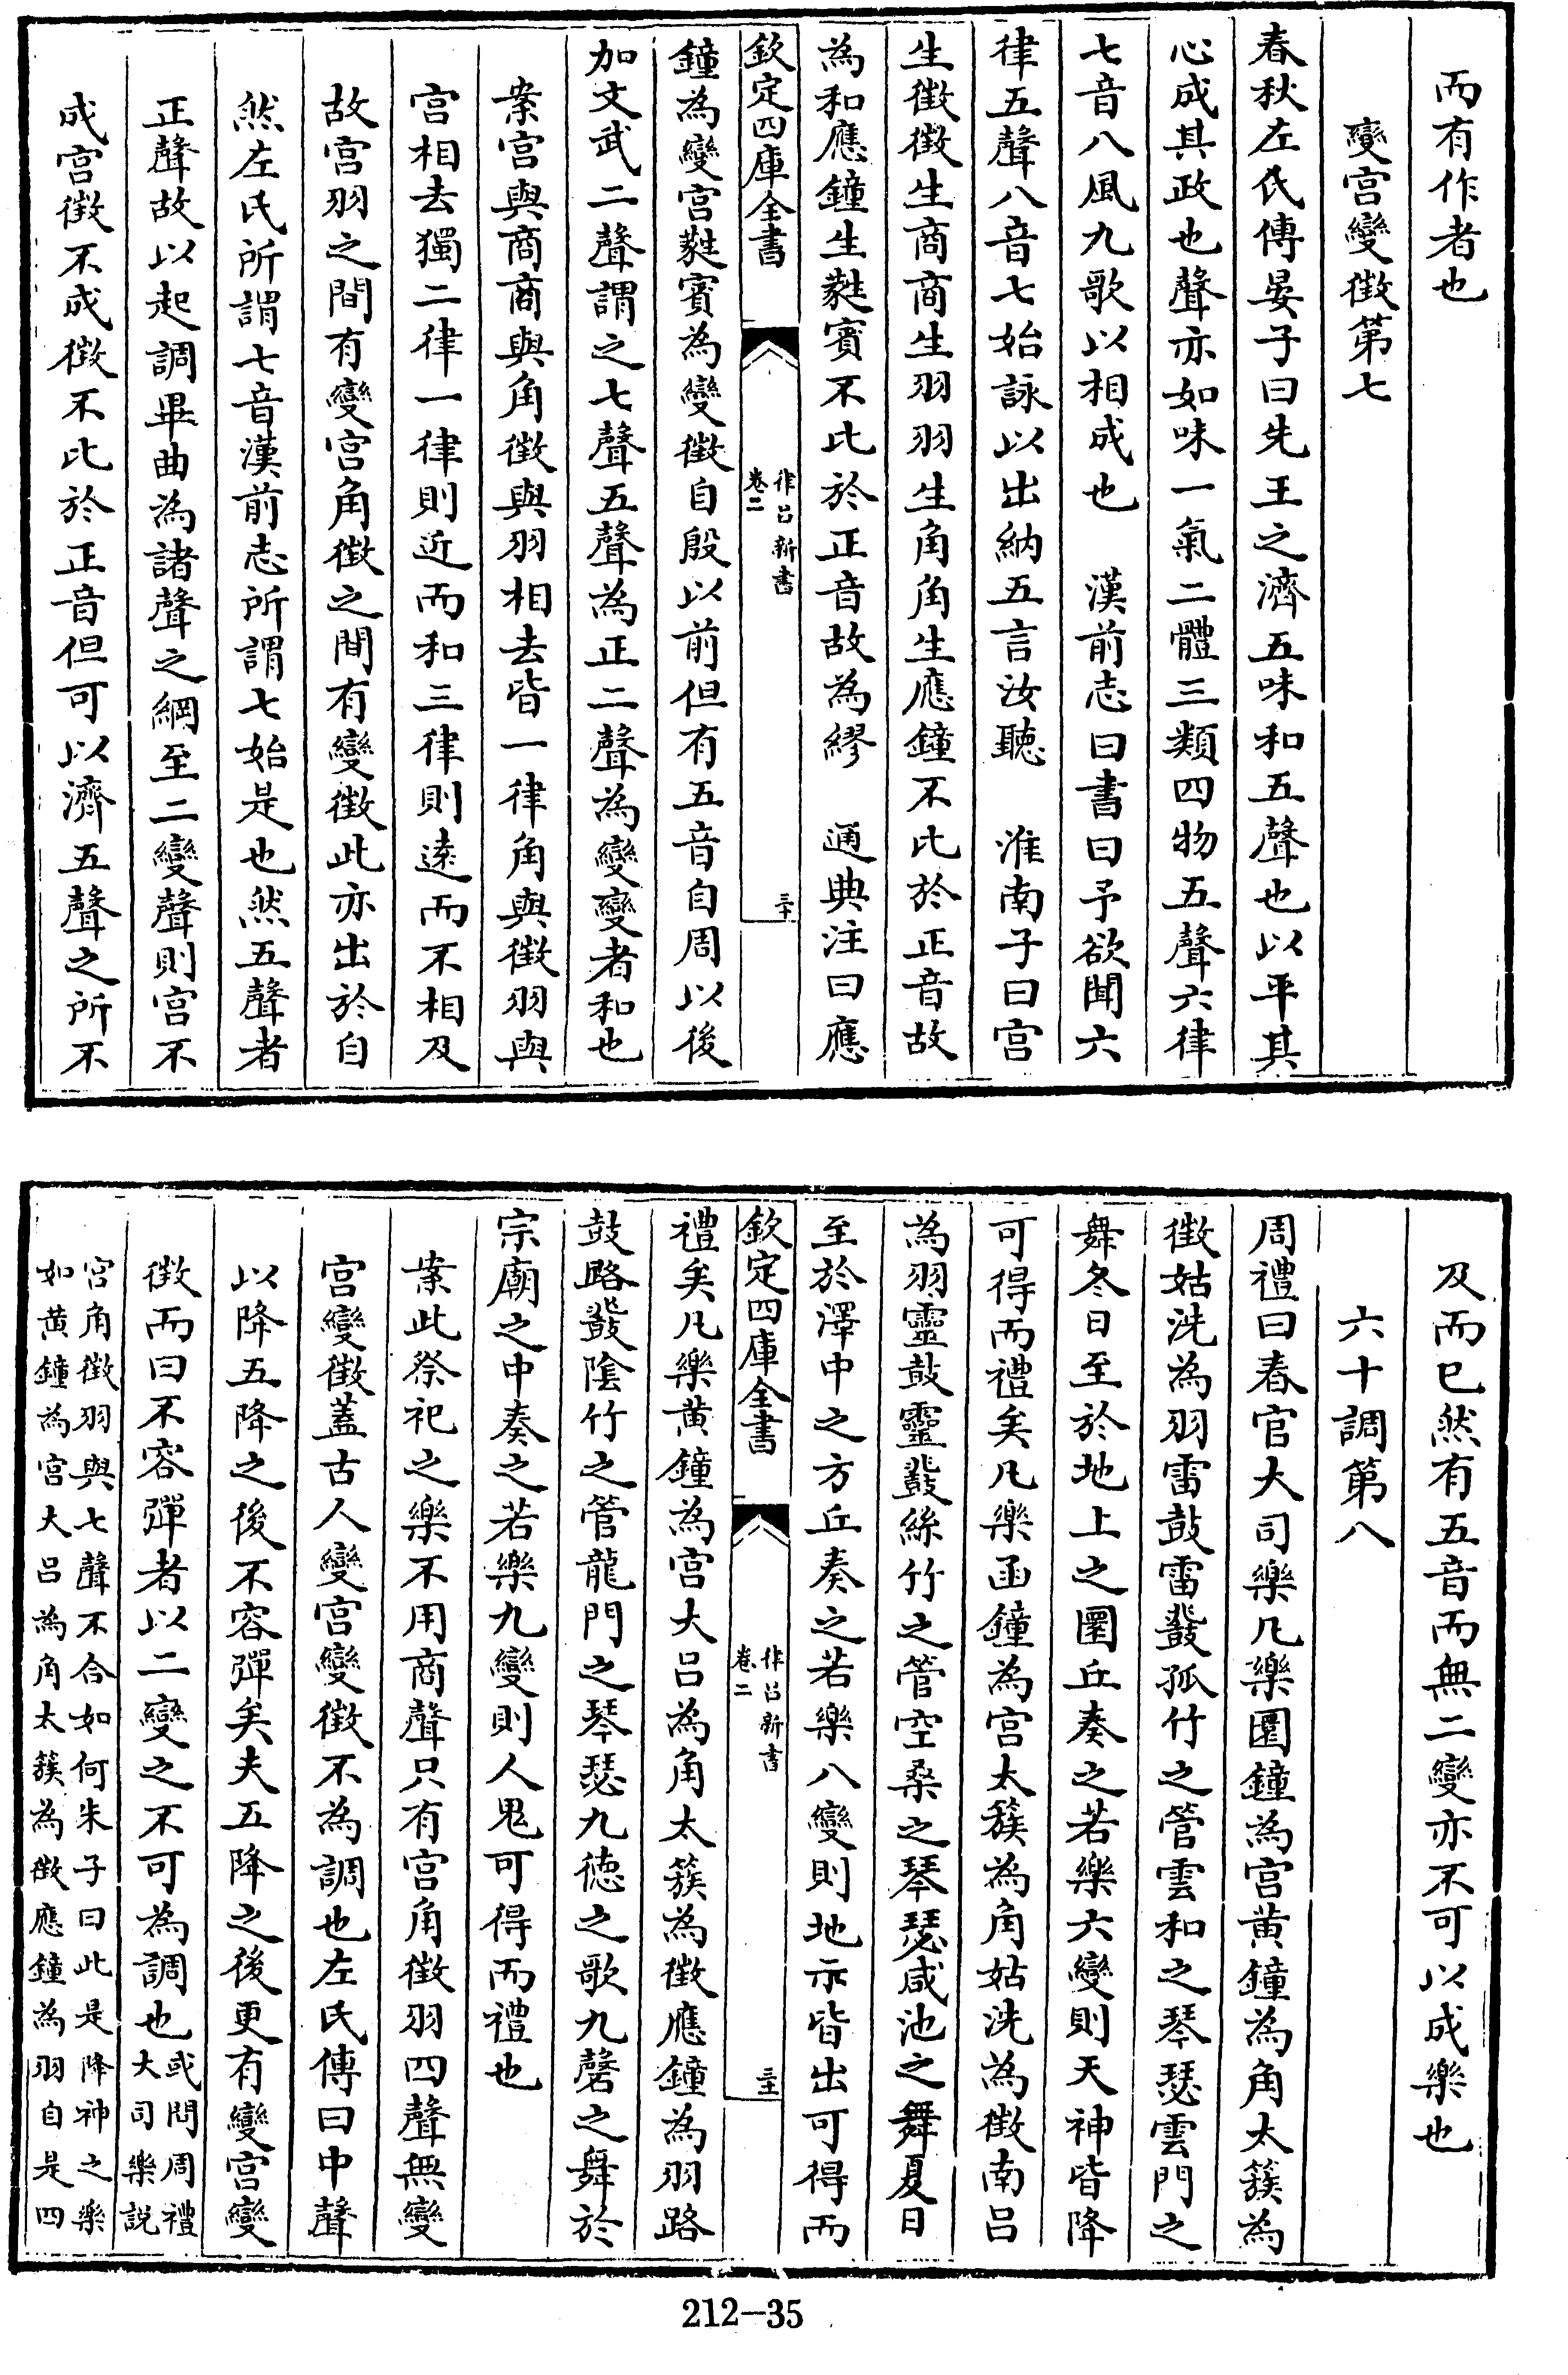 而有作者也
變宮變徵第七
春秋左氏傳晏子曰先王之濟五味和五聲也以平其
心成其政也聲亦如味一氣二體三類四物五聲六律
七音八風九歌以相成也　漢前志曰書曰予欲聞六
律五聲八音七始詠以出納五言汝聽　淮南子曰宮
生徵徵生商商生羽羽生角角生應鐘不比於正音故
為和應鐘生蕤賓不比於正音故為繆　通典注曰應
欽定四庫全書
律呂新書
卷二
三十
鐘為變宮蕤賓為變徵自殷以前但有五音自周以後
加文武二聲謂之七聲五聲為正二聲為變變者和也
案宮與商商與角徵與羽相去皆一律角與徵羽與
宮相去獨二律一律則近而和三律則遠而不相及
故宮羽之間有變宮角徵之間有變徵此亦出於自
然左氏所謂七音漢前志所謂七始是也然五聲者
正聲故以起調畢曲為諸聲之綱至二變聲則宮不
成宮徵不成徵不比於正音但可以濟五聲之所不
及而已然有五音而無二變亦不可以成樂也
六十調第八
周禮曰春官大司樂凡樂圜鐘為宮黃鐘為角太簇為
徵姑洗為羽雷鼓雷鼗孤竹之管雲和之琴瑟雲門之
舞冬日至於地上之圜丘奏之若樂六變則天神皆降
可得而禮矣凡樂函鐘為宮太簇為角姑洗為徵南呂
為羽靈鼓靈鼗絲竹之管空桑之琴瑟咸池之舞夏日
至於澤中之方丘奏之若樂八變則地示皆出可得而
欽定四庫全書
律呂新書
卷二
三十一
禮矣凡樂黃鐘為宮大呂為角太簇為徵應鐘為羽路
鼓路鼗陰竹之管龍門之琴瑟九德之歌九磬之舞於
宗廟之中奏之若樂九變則人鬼可得而禮也
案此祭祀之樂不用商聲只有宮角徵羽四聲無變
宮變徵蓋古人變宮變徵不為調也左氏傳曰中聲
以降五降之後不容彈矣夫五降之後更有變宮變
徵而曰不容彈者以二變之不可為調也或問周禮
大司樂說
宮角徵羽與七聲不合如何朱子曰此是降神之樂
如黃鐘為宮大呂為角太簇為徵應鐘為羽自是四
212—35